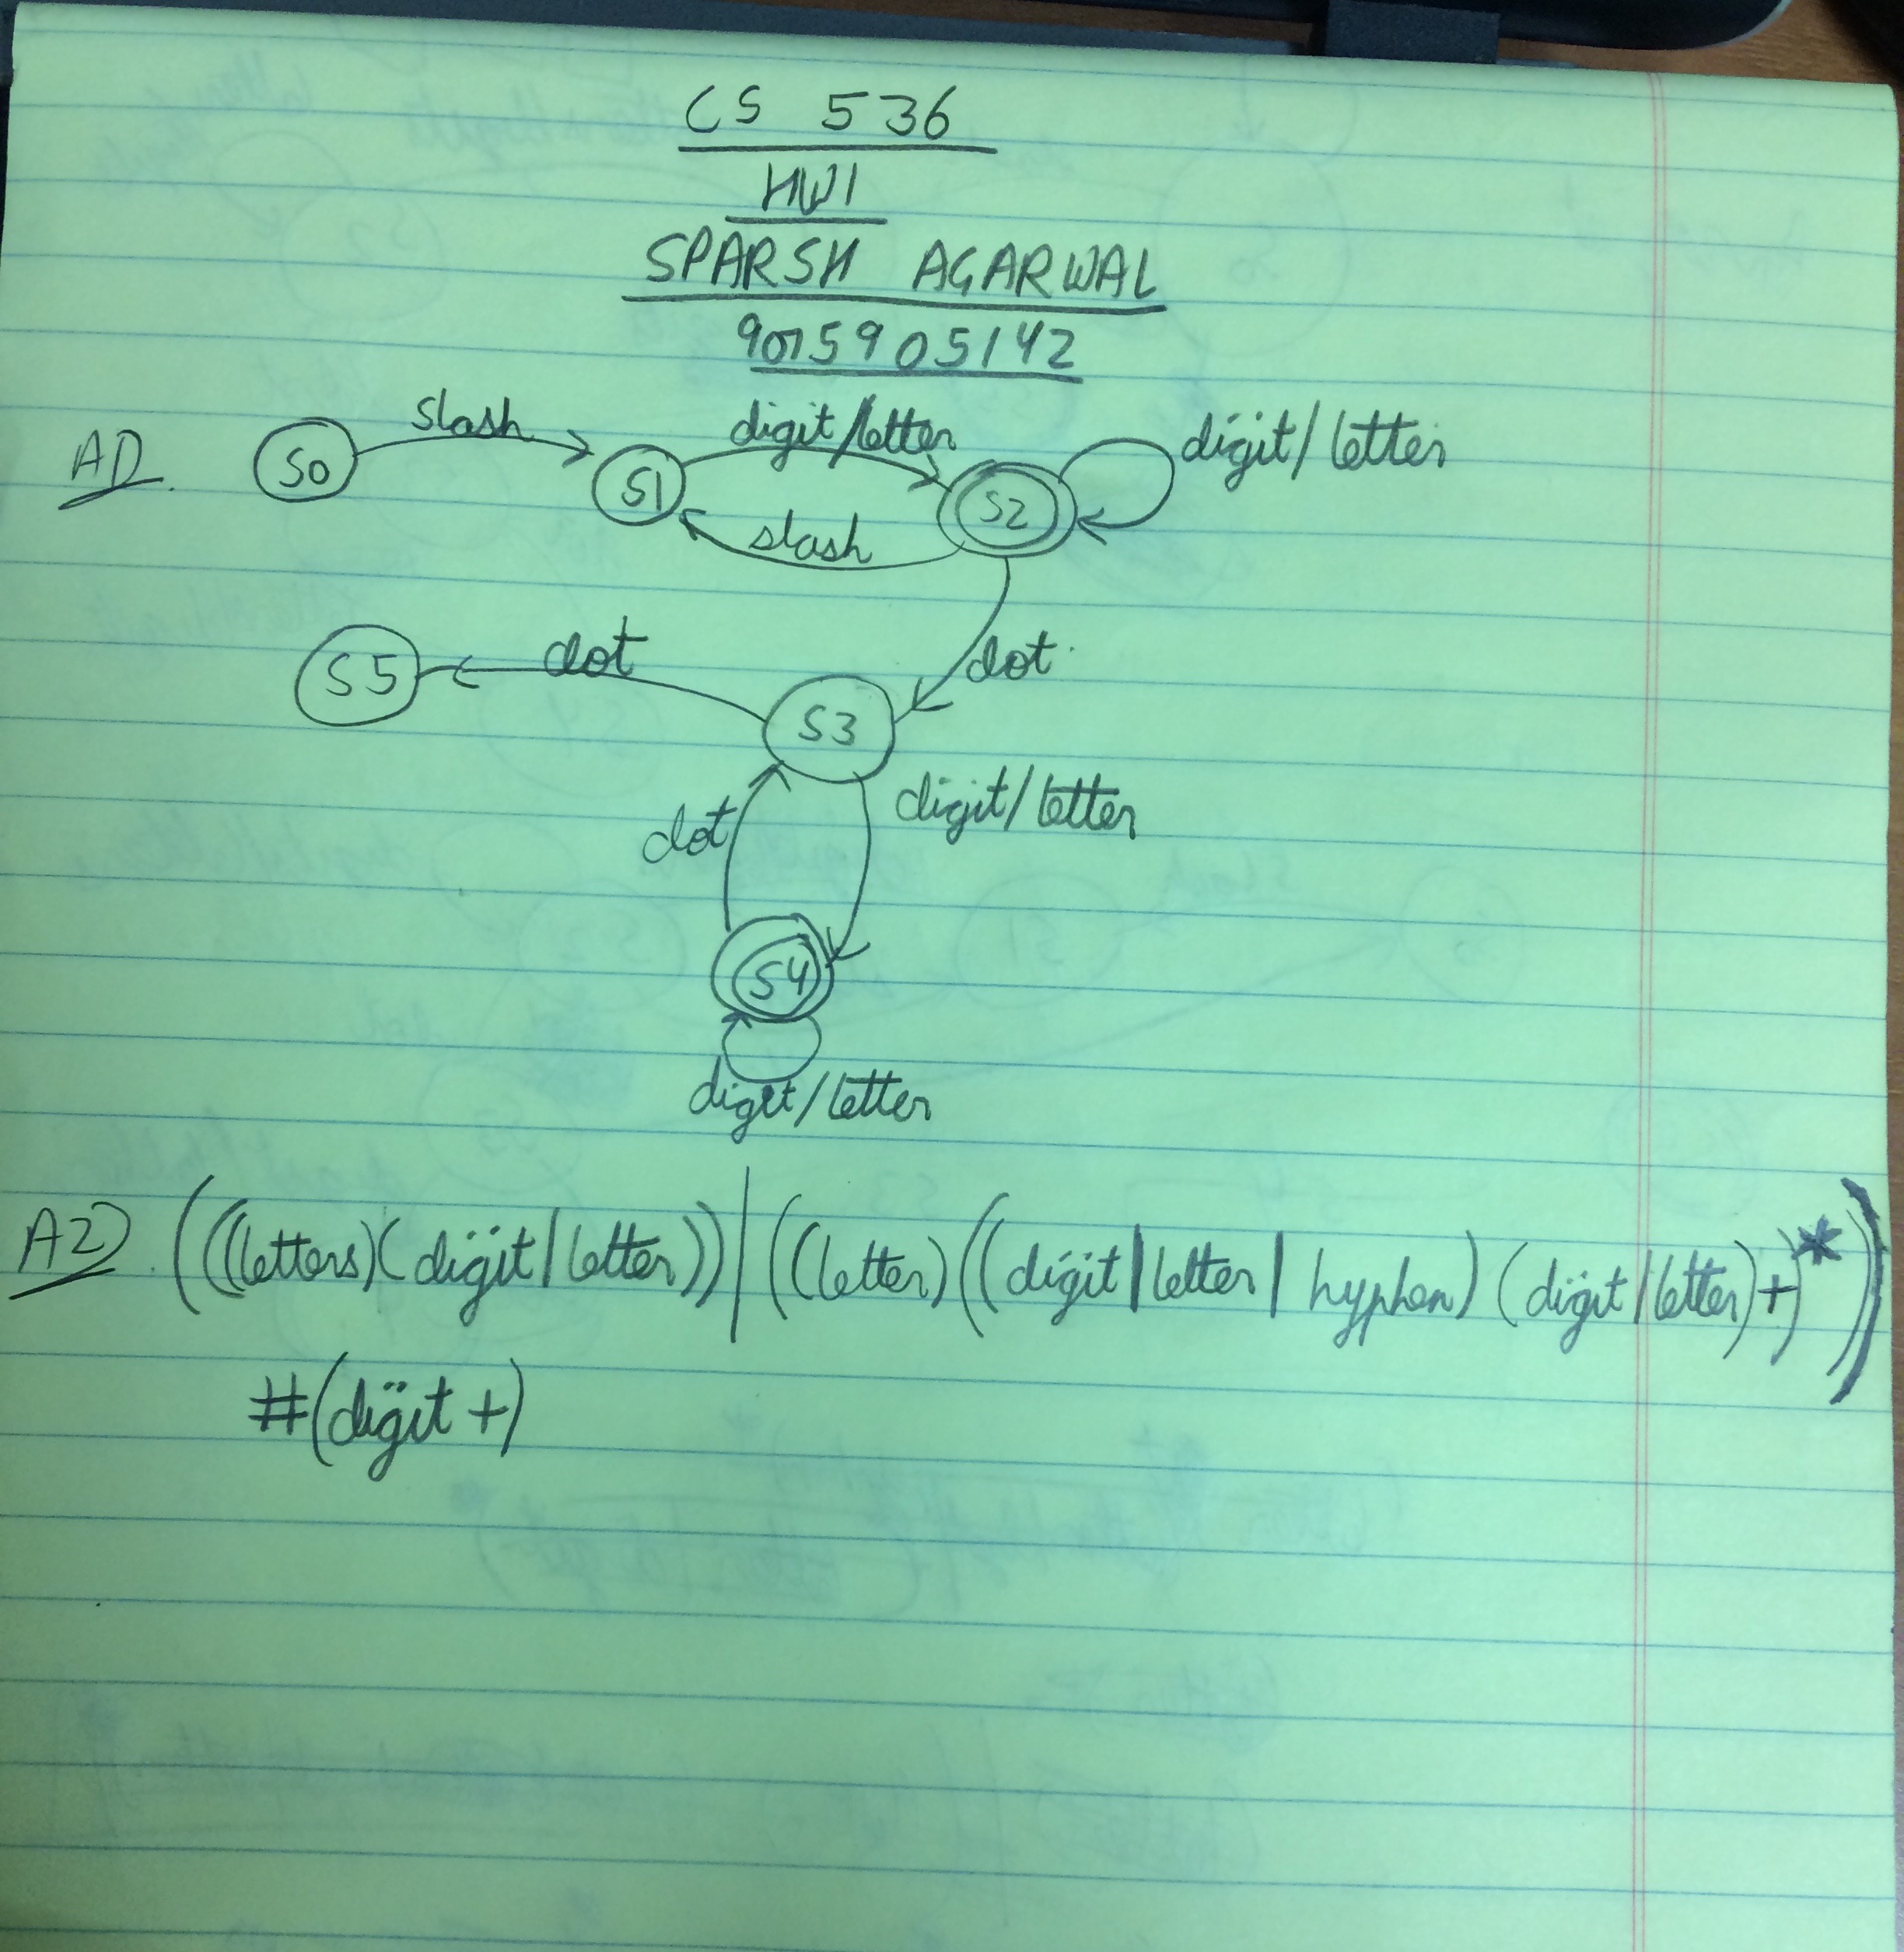 CS 536
HW1
SPARSH AGARWAL
9075905142
A1)
slash
digit/letter
digit/letter
S0
S1
S2
slash
dot
dot
S5
S3
digit/letter
dot
S4
digit/letter
A2) (((letters)(digit|letter))|((letter)((digit|letter|hyphen)(digit|letter)+)*))
#(digit+)